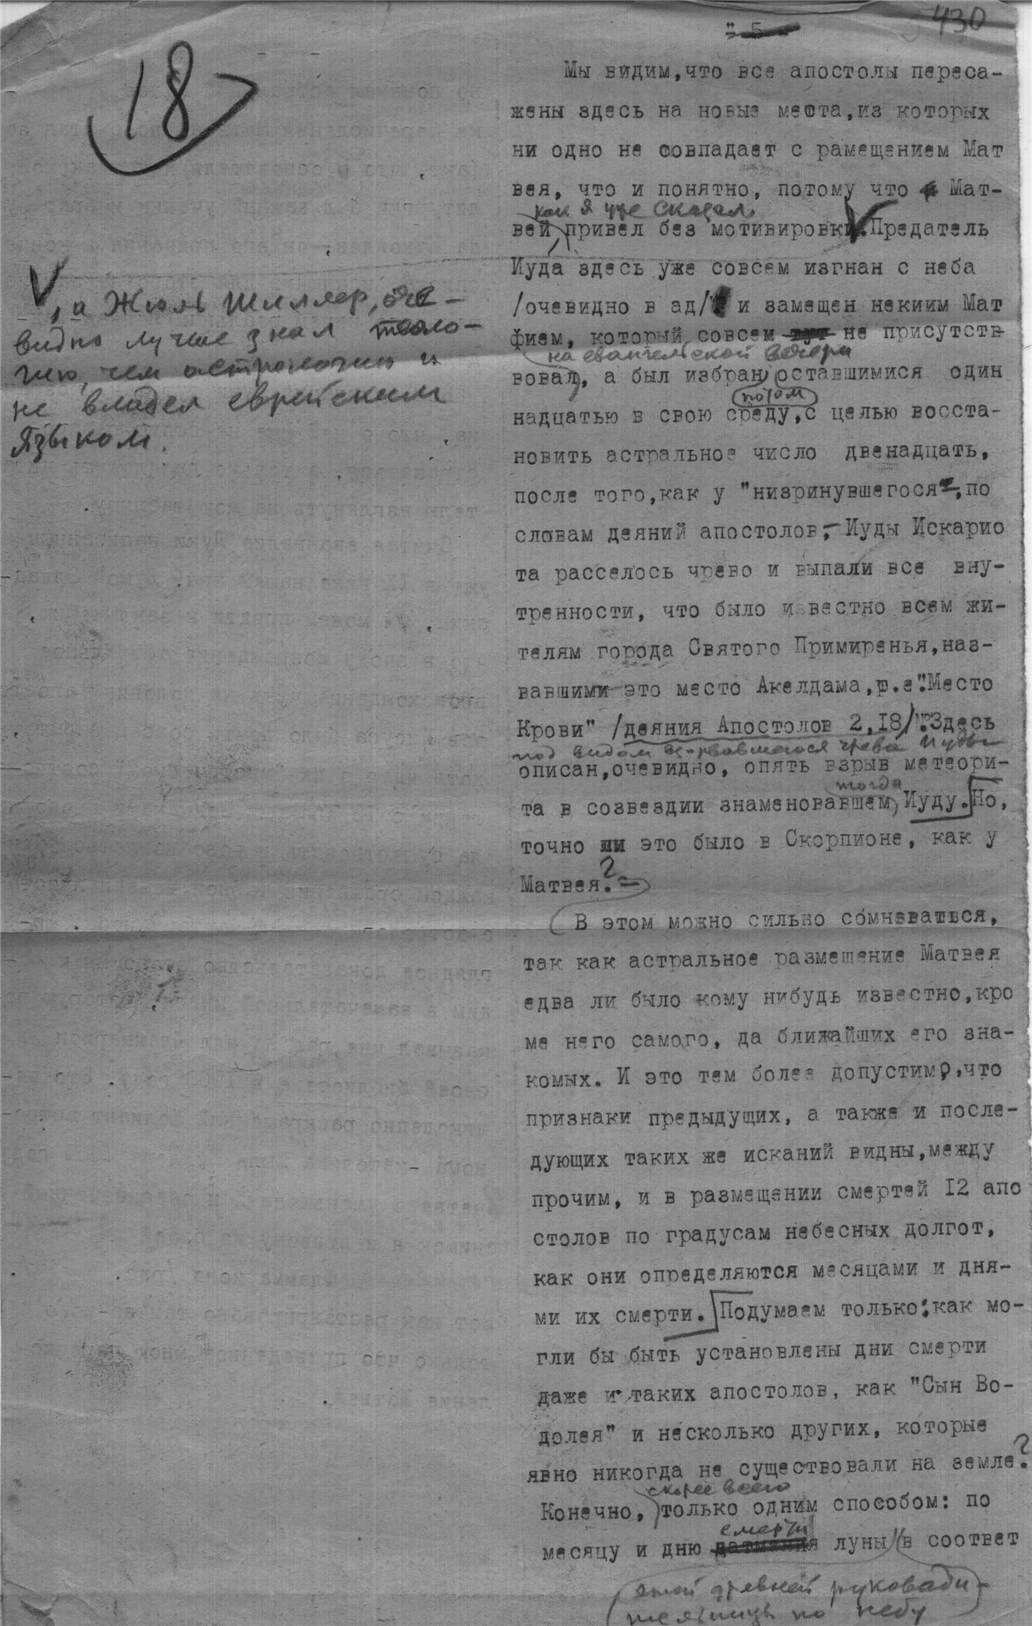 430
18
" 5 -
Мы видим,что все апостолы переса-
жены здесь на новые места,из которых
ни одно не совпадает с рамещением Мат
вея, что и понятно, потому что Мат-
как я уже сказал
вей привел без мотивировки. Предатель
Иуда здесь уже совсем изгнан с неба
/очевидно в ад/ и замещен некиим Мат
фием, который совсем тут не присутств
на евангельской вечери
вовал, а был избран оставшимися один
потом
надцатью в свою среду,с целью восста-
новить астральное число двенадцать,
после того,как у "низринувшегося",по
словам деяний апостолов,- Иуды Искарио
та расселось чрево и выпали все вну-
тренности, что было известно всем жи-
телям города Святого Примиренья,наз-
вавшими это место Акелдама,т.е."Место
Крови" /деяния Апостолов 2,18/. Здесь
под видом чрева Иуды
описан,очевидно, опять взрыв метеори-
тогда
та в созвездии знаменовавшем Иуду. Но,
точно ли это было в Скорпионе, как у
Матвея?-
В этом можно сильно сомневаться,
так как астральное размещение Матвея
едва ли было кому нибудь известно,кро
ме него самого, да ближайших его зна-
комых. И это тем более допустимо,что
признаки предыдущих, а также и после-
дующих таких же исканий видны,между
прочим, и в размещении смертей 12 апо
столов по градусам небесных долгот,
как они определяются месяцами и дня-
ми их смерти. Подумаем только: как мо-
гли бы быть установлены дни смерти
даже и таких апостолов, как "Сын Во-
долея" и несколько других, которые
явно никогда не существовали на земле?
скорее всего
Конечно, только одним способом: по
смерти
месяцу и дню луны в соответ
этой древней руководи-
по небу
V, а Жюль Шиллер, оче-
видно лучше знал теоло-
гию, чем астрологию и
не владел еврейским
языком.